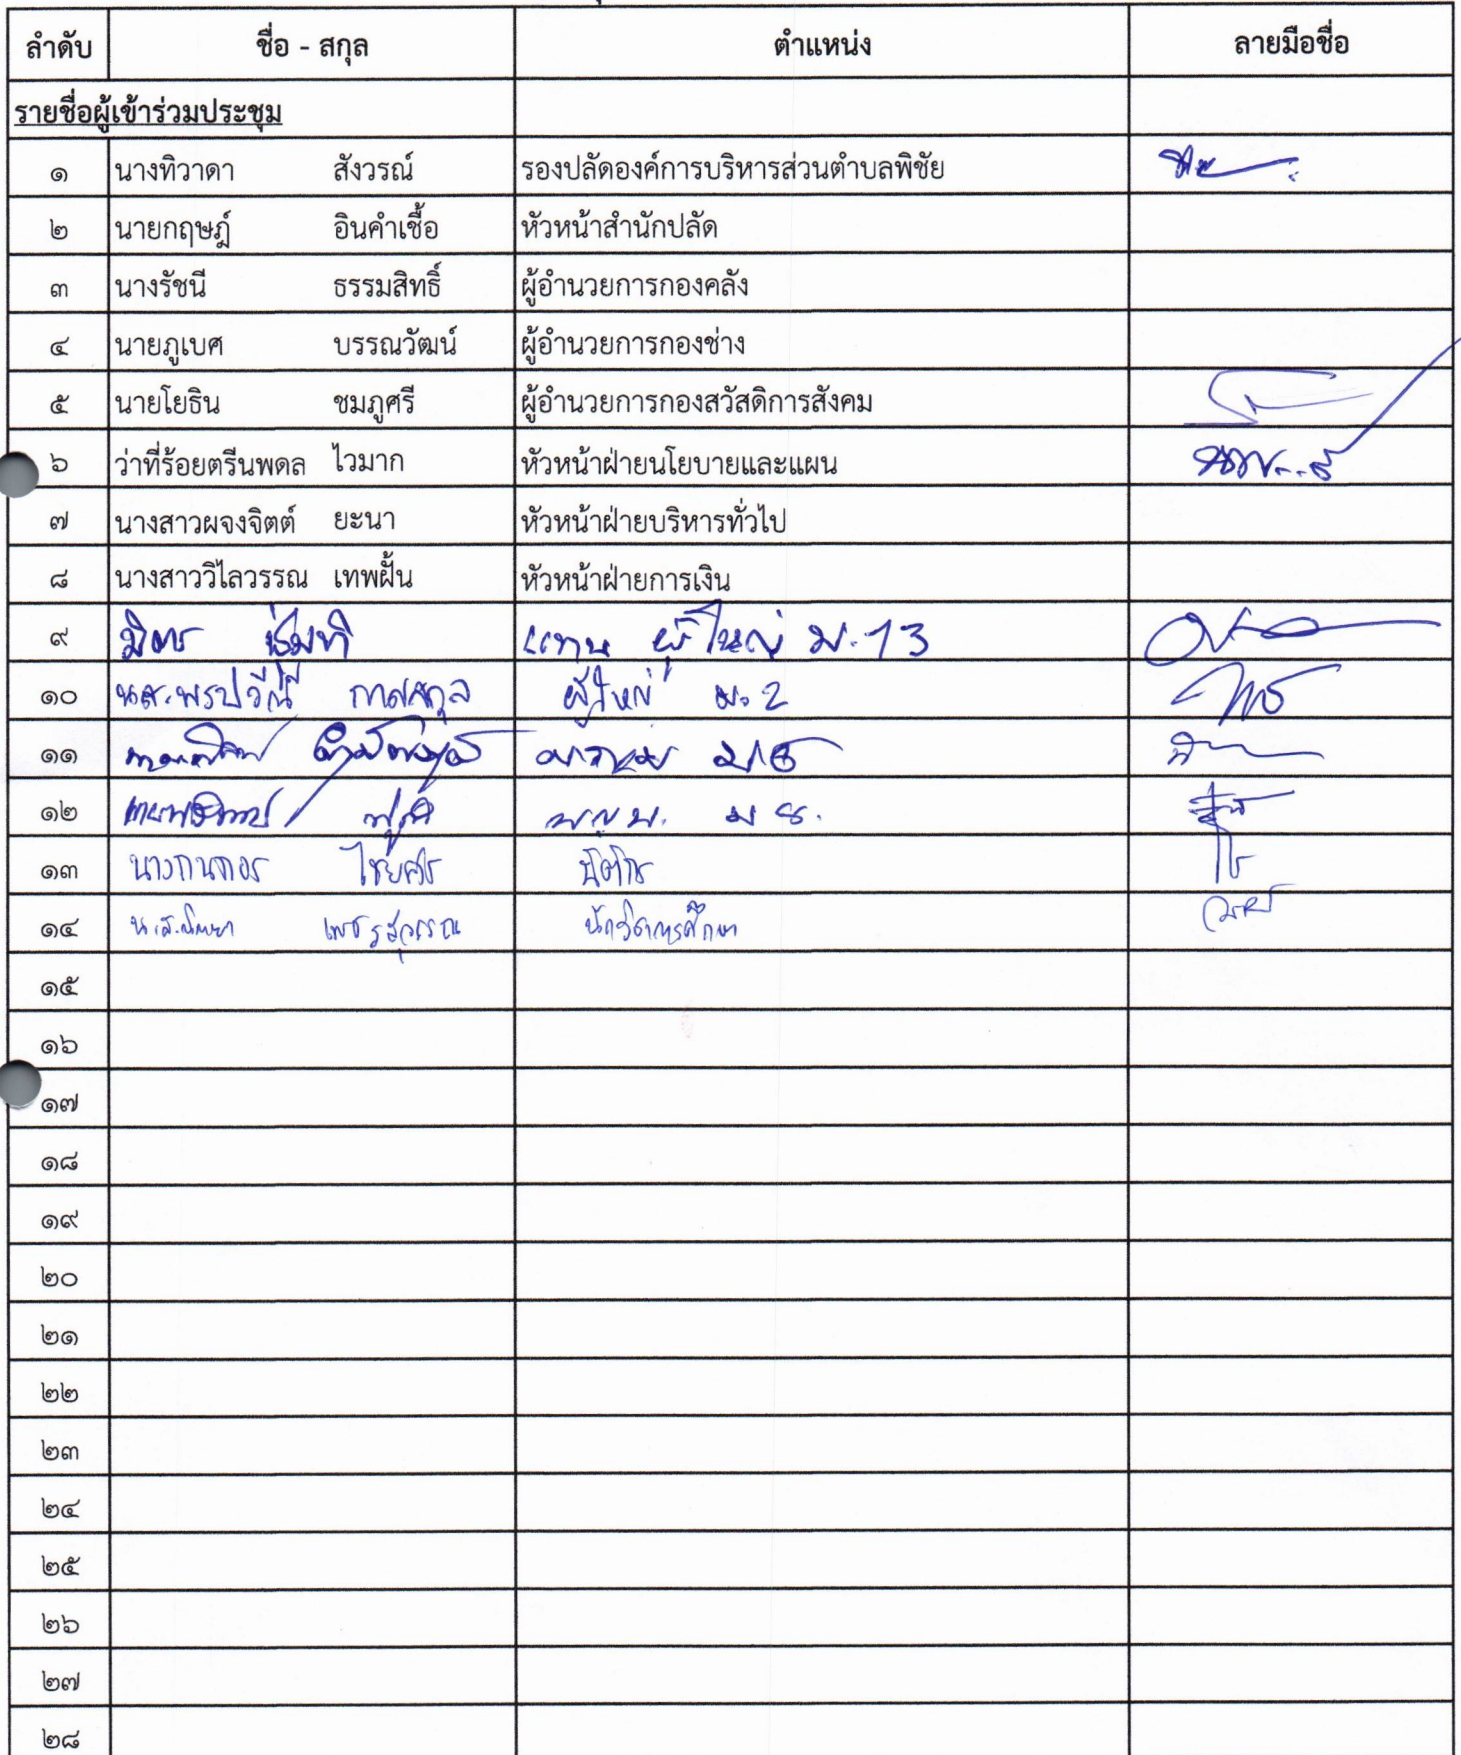 ลำดับ ชื่อ - สกุล ตำแหน่ง ลายมือชื่อ
รายชื่อผู้เข้าร่วมประชุม
๑ นางทิวาดา สังวรณ์ รองปลัดองค์การบริหารส่วนตำบลพิชัย
๒ นายกฤษฎ์ อินคำเชื้อ หัวหน้าสำนักปลัด
๓ นางรัชนี ธรรมสิทธิ์ ผู้อำนวยการกองคลัง
๔ นายภูเบศ บรรณวัฒน์ ผู้อำนวยการกองช่าง
๕ นายโยธิน ชมภูศรี ผู้อำนวยการกองสวัสดิการสังคม
๖ ว่าที่ร้อยตรีนพดล ไวมาก หัวหน้าฝ่ายนโยบายและแผน
๗ นางสาวผจงจิตต์ ยะนา หัวหน้าฝ่ายบริหารทั่วไป
๘ นางสาววิไลวรรณ เทพฝั้น หัวหน้าฝ่ายการเงิน
๙ มิตร แทน ผู้ใหญ่ ม.13
๑๐ น.ส.พรปวีณ์ ผู้ใหญ่ ม.2
๑๑
๑๒ ม 8.
๑๓ นางกนกอร ไชยศร นิติกร
๑๔ น.ส. เพชรสุวรรณ นักวิชาการศึกษา
๑๕
๑๖
๑๗
๑๘
๑๙
๒๐
๒๑
๒๒
๒๓
๒๔
๒๕
๒๖
๒๗
๒๘